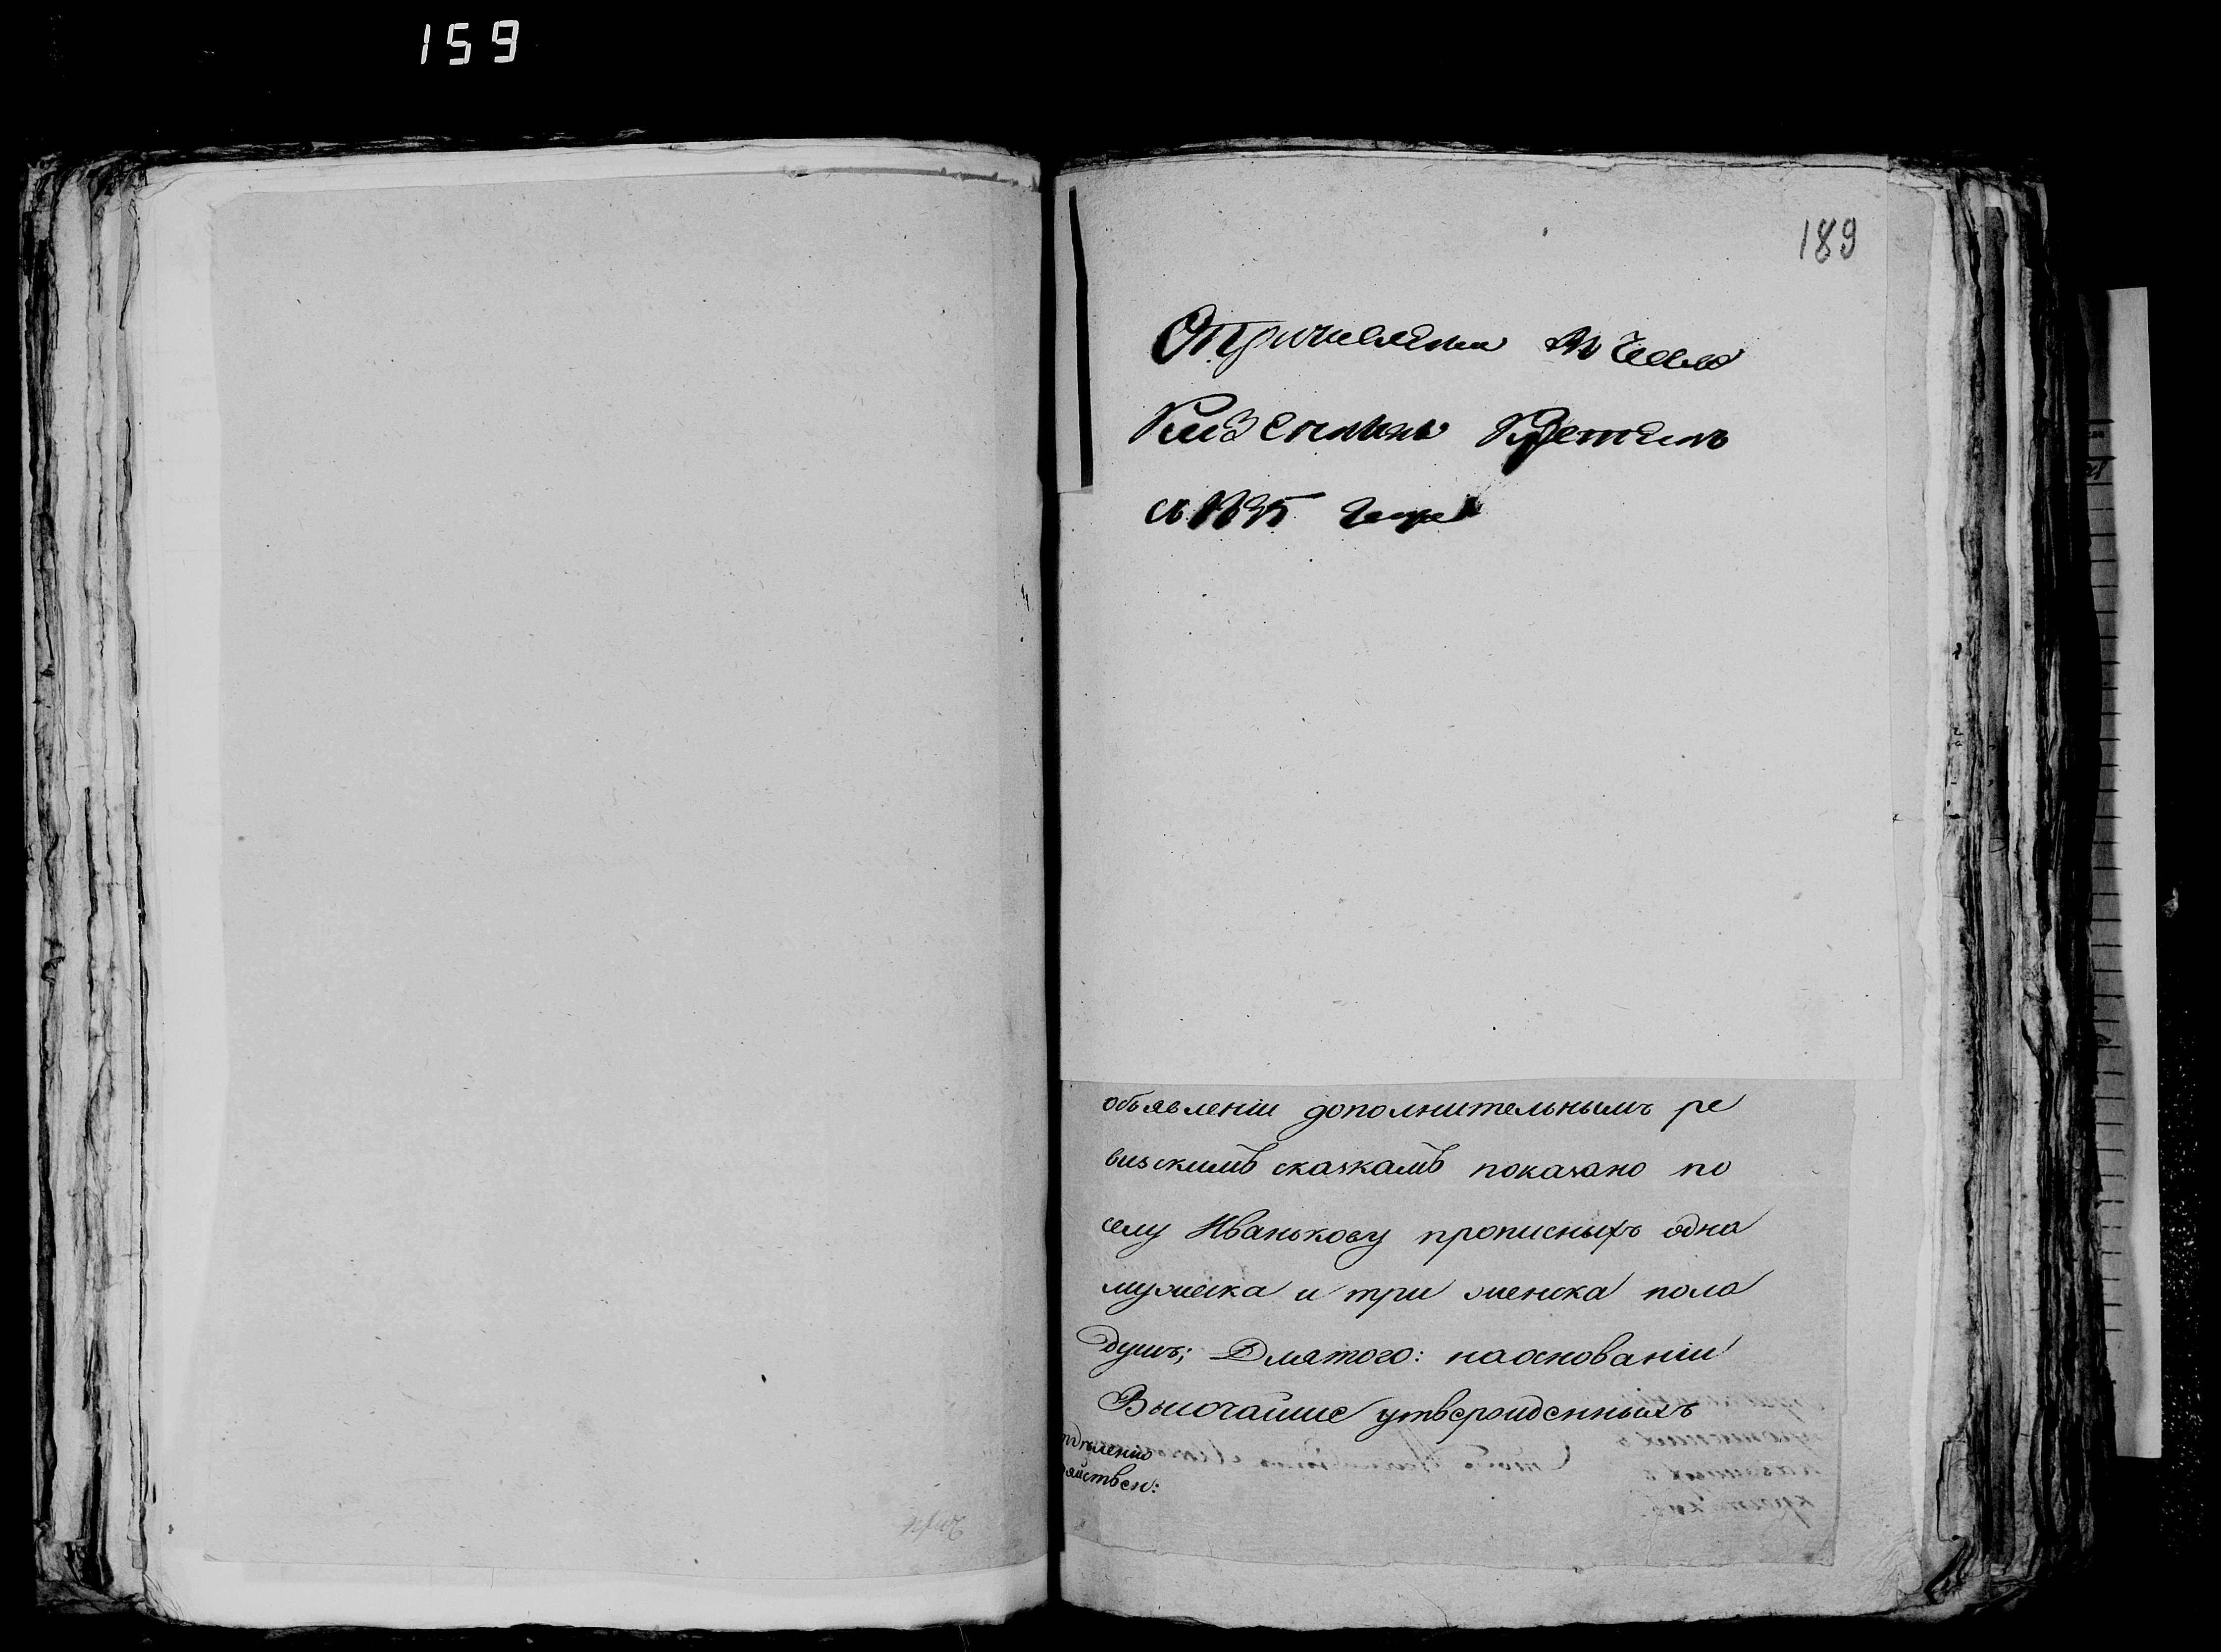 159
189
О причислении въ число
Казенныхъ Крестьянъ
съ 1835 года
объявленіи дополнительнымъ ре
визскимъ сказкамъ показано по
селу Иванькову прописныхъ одна
мужеска и три женска пола
душъ; Длятого: наоснованіи
Высочайше утвержденныхъ
отдѣленію
зяйствен: